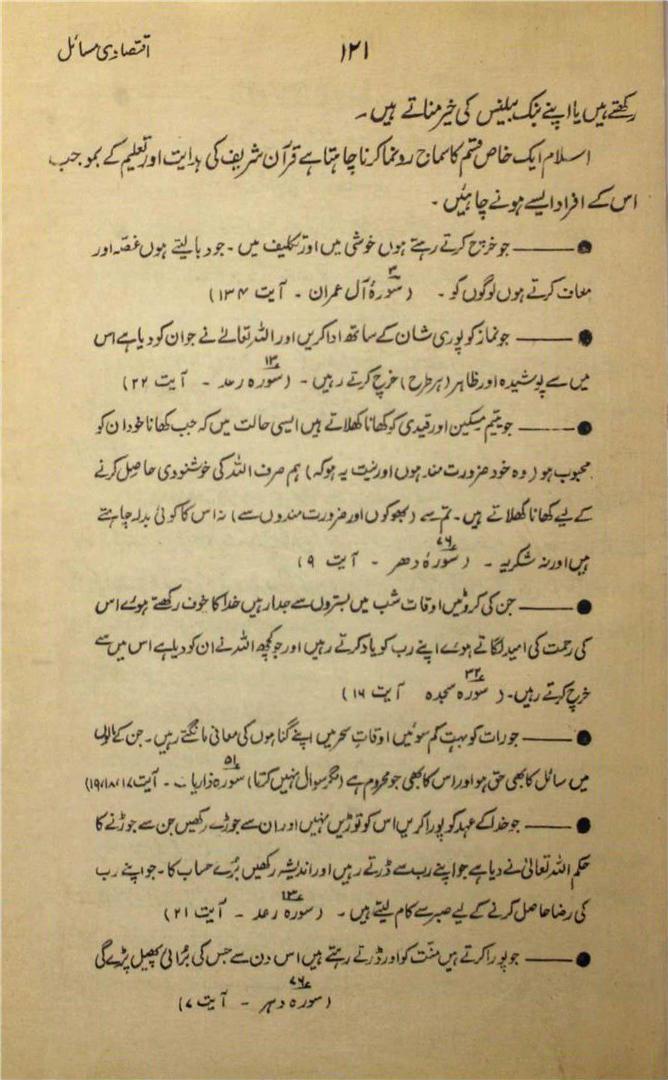 اقتصادی مسائل ۱۲۱
رکھتے ہیں یا اپنے بنک بیلنس کی خیر مناتے ہیں۔
اسلام ایک خاص قسم کا سماج رونما کرنا چاہتا ہے قرآن شریف کی ہدایت اور تعلیم کے بموجب
اس کے افراد ایسے ہونے چاہئیں۔
● —— جو خرچ کرتے رہتے ہوں خوشی میں اور تکلیف میں۔ جو دبا لیتے ہوں غصّہ اور
معاف کرتے ہوں لوگوں کو۔ (سورۂ آل عمران ۳ ۔ آیت ۱۳۴)
● —— جو نماز کو پوری شان کے ساتھ ادا کریں اور اللہ تعالےٰ نے جو ان کو دیا ہے اس
میں سے پوشیدہ اور ظاہر (ہر طرح) خرچ کرتے رہیں۔ (سورہ رعد ۱۳ ۔ آیت ۲۲)
● —— جو یتیم مسکین اور قیدی کو کھانا کھلاتے ہیں ایسی حالت میں کہ جب کھانا خود ان کو
محبوب ہو (وہ خود ضرورت مند ہوں اور نیت یہ ہو کہ) ہم صرف اللہ کی خوشنودی حاصل کرنے
کے لیے کھانا کھلاتے ہیں۔ تم سے (بھوکوں اور ضرورت مندوں سے) نہ اس کا کوئی بدلہ چاہتے
ہیں اور نہ شکریہ۔ (سورۂ دھر ۷۶ ۔ آیت ۹)
● —— جن کی کروٹیں اوقات شب میں بستروں سے جدا رہیں خدا کا خوف رکھتے ہوئے اس
کی رحمت کی امید لگاتے ہوئے اپنے رب کو یاد کرتے رہیں اور جو کچھ اللہ نے ان کو دیا ہے اس میں سے
خرچ کرتے رہیں۔ (سورہ سجدہ ۳۲ آیت ۱۶)
● —— جو رات کو بہت کم سوئیں اوقاتِ سحر میں اپنے گناہوں کی معافی مانگتے رہیں۔ جن کے مالوں
میں سائل کا بھی حق ہو اور اس کا بھی جو محروم ہے (مگر سوال نہیں کرتا) سورہ ذاریات ۵۱ ۔ آیت ۱۷، ۱۸، ۱۹)
● —— جو خدا کے عہد کو پورا کریں اس کو توڑیں نہیں اور ان سے جوڑے رکھیں جن سے جوڑنے کا
حکم اللہ تعالیٰ نے دیا ہے جو اپنے رب سے ڈرتے رہیں اور اندیشہ رکھیں بُرے حساب کا۔ جو اپنے رب
کی رضا حاصل کرنے کے لیے صبر سے کام لیتے ہیں۔ (سورہ رعد ۱۳ ۔ آیت ۲۱)
● —— جو پورا کرتے ہیں منّت کو اور ڈرتے رہتے ہیں اس دن سے جس کی بُرائی پھیل پڑے گی
(سورہ دہر ۷۶ ۔ آیت ۷)